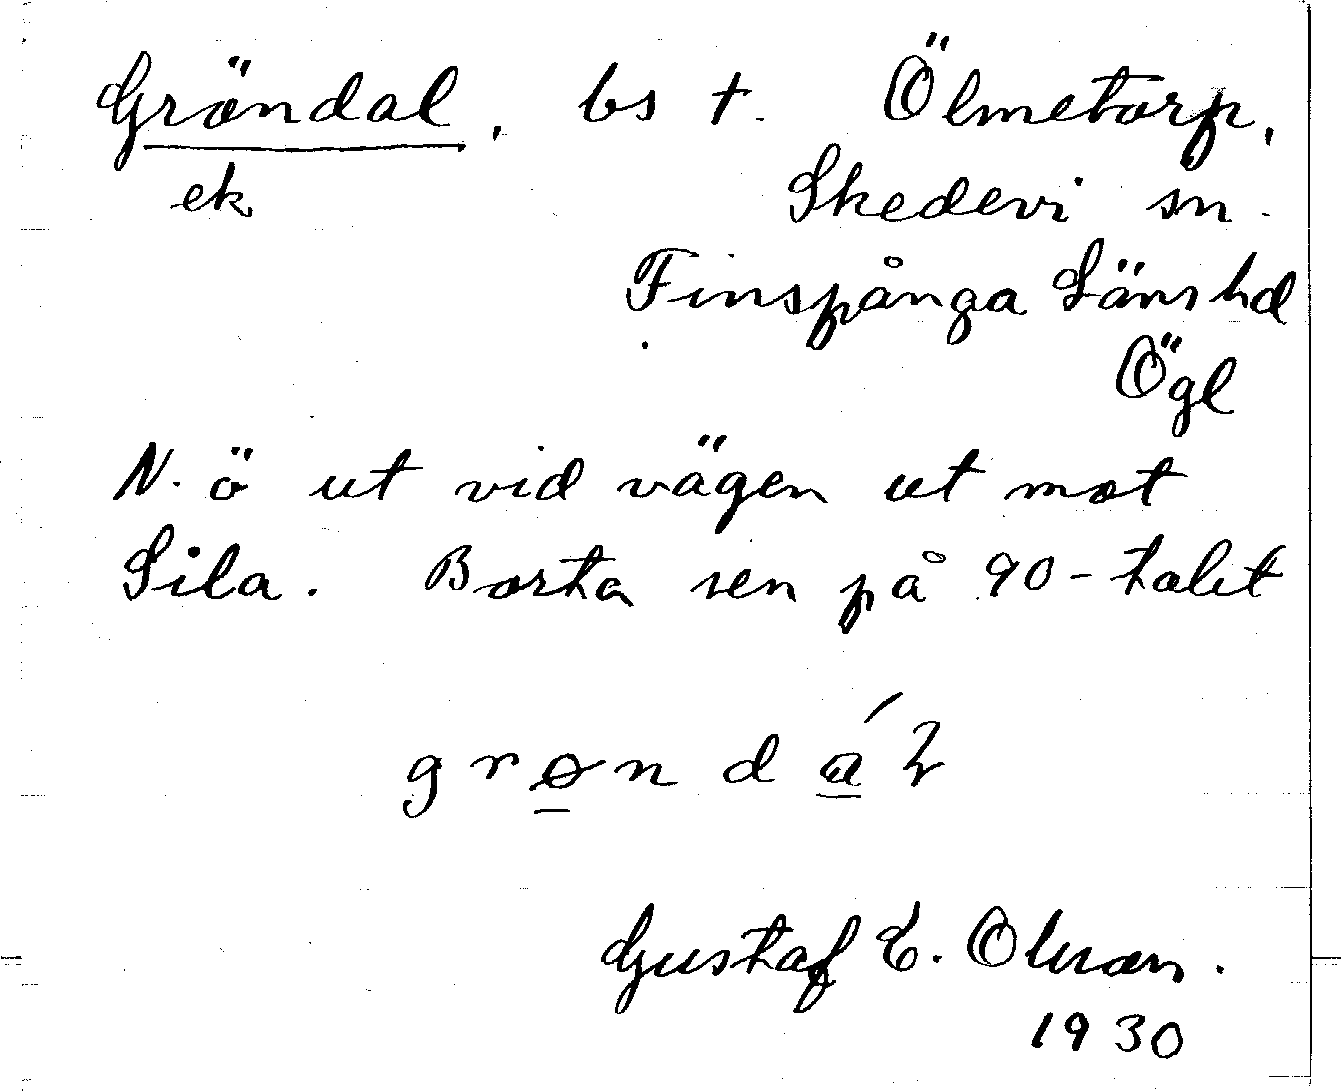 Gröndal, bs t. Ölmetorp,
ek Skedevi sn.
Finspånga Läns hd
Ögl
N. ö ut vid vägen ut mot
Sila. Borta sen på 90-talet
grøndáɫ
Gustaf E. Olsson.
1930